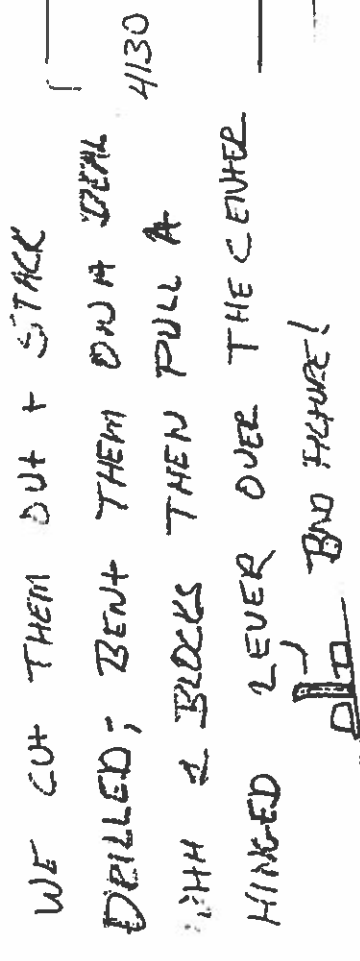 WE CUT THEM OUT + STACK
DRILLED; BENT THEM ON A DEAL
4130
WITH 2 BLOCKS THEN PULL A
HINGED LEVER OVER THE CENTER
BAD PICTURE!